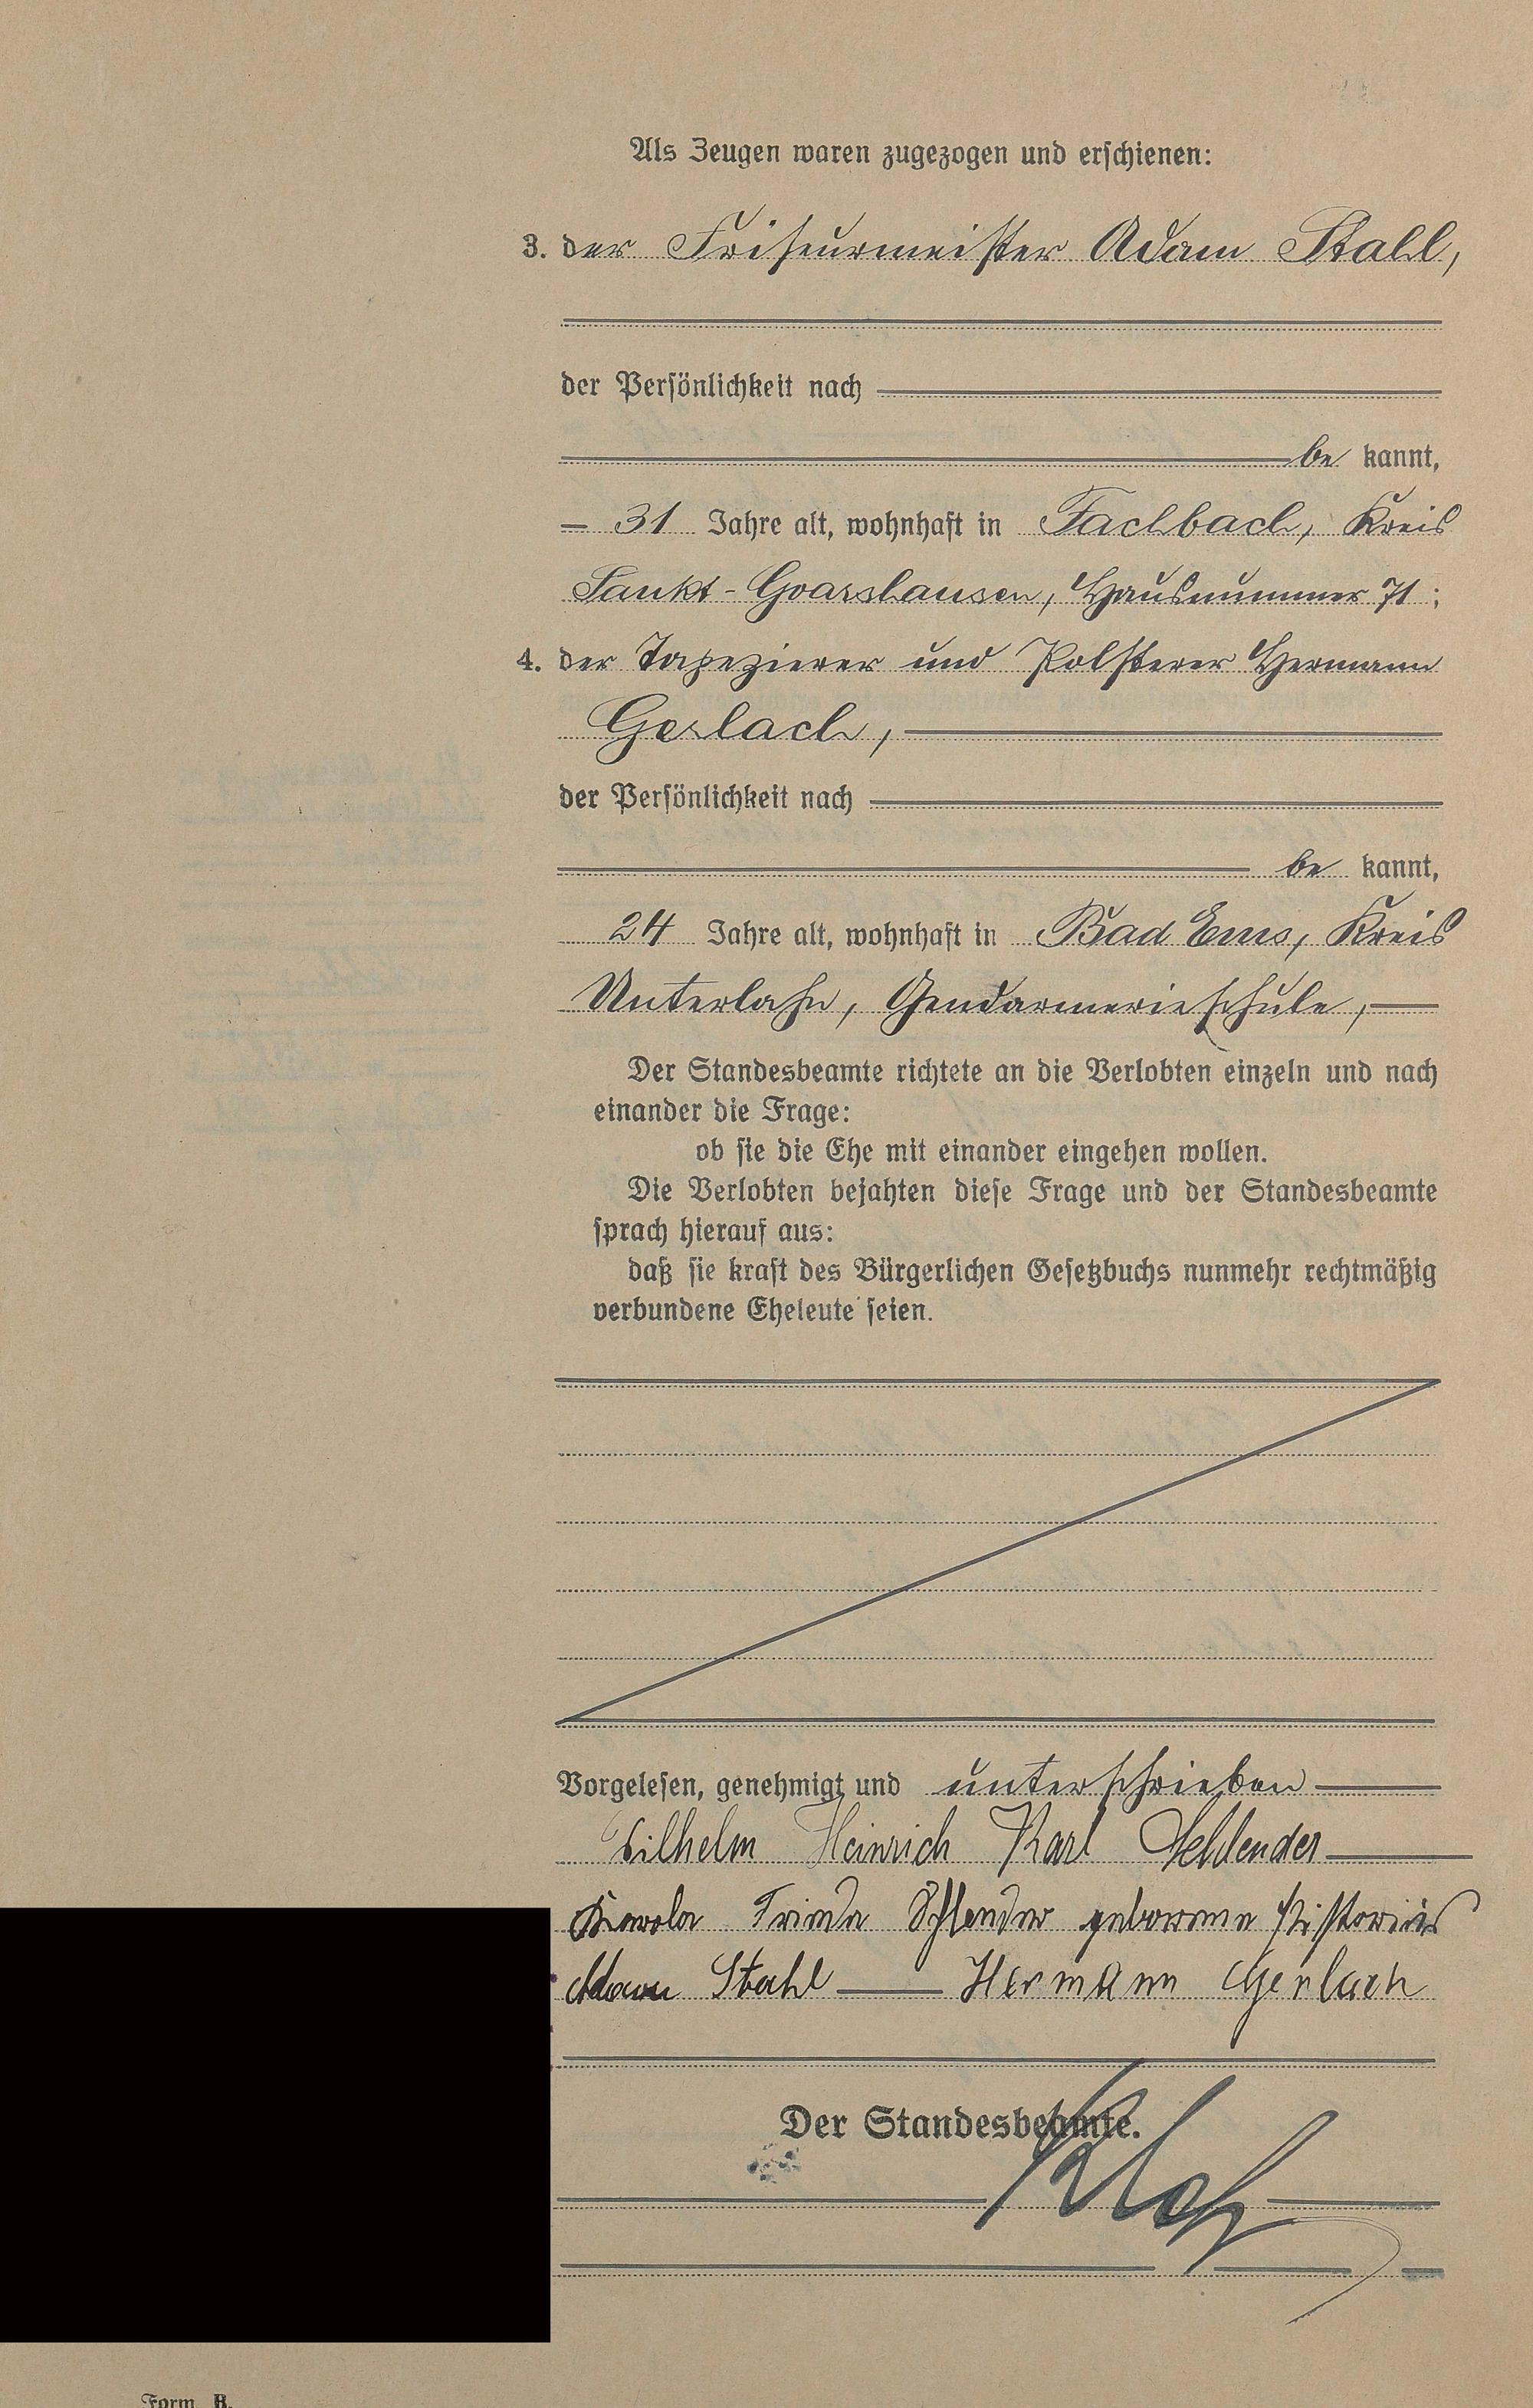 Als Zeugen waren zugezogen und erschienen:
3. der Friseurmeister Adam Stahl,
der Persönlichkeit nach
be kannt,
31 Jahre alt, wohnhaft in Fachbach, Kreis
Sankt-Goarshausen, Hausnummer 71;
4. der Tapezierer und Polsterer Hermann
Gerlach,
der Persönlichkeit nach
be kannt,
24 Jahre alt, wohnhaft in Bad Ems, Kreis
Unterlahn, Gendarmerieschule,
Der Standesbeamte richtete an die Verlobten einzeln und nach
einander die Frage:
ob sie die Ehe mit einander eingehen wollen.
Die Verlobten bejahten diese Frage und der Standesbeamte
sprach hierauf aus:
daß sie kraft des Bürgerlichen Gesetzbuchs nunmehr rechtmäßig
verbundene Eheleute seien.
Vorgelesen, genehmigt und unterschrieben
Wilhelm Heinrich Karl Schlender
Karola Frieda Schlender geborene Pistorius
Adam Stahl Hermann Gerlach
Der Standesbeamte.
Form B.